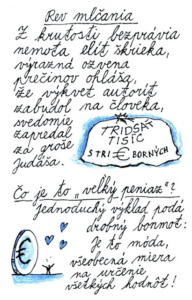 Rev mlčania
Z krutosti bezprávia
nemota elít škrieka,
výrazná ozvena
prečinov ohláša,
že výkvet autorít
zabudol na človeka,
svedomie
zapredal
za groše
Judáša.
TRIDSAŤ
TISÍC
STRI€BORNÝCH
Čo je to "veľký peniaz"?
Jednoduchý výklad podá
drobný bonmot:
Je to móda,
všeobecná miera
na určenie
všetkých hodnôt!
€